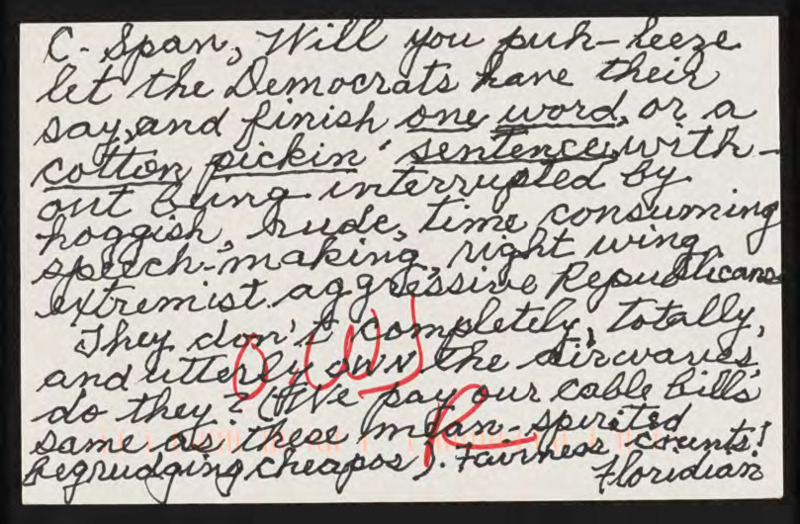 C-Span, Will you puh-leeze
let the Democrats have their
say, and finish one word, or a
cotton pickin' sentence, with-
out being interrupted by
hoggish, rude, time consuming
speech-making, right wing
extremist aggressive Republicans
They don't completely, totally,
and utterly own the airwaves,
do they? (We pay our cable bills
same as these mean-spirited
begrudging cheapos). Fairness counts!
Floridian